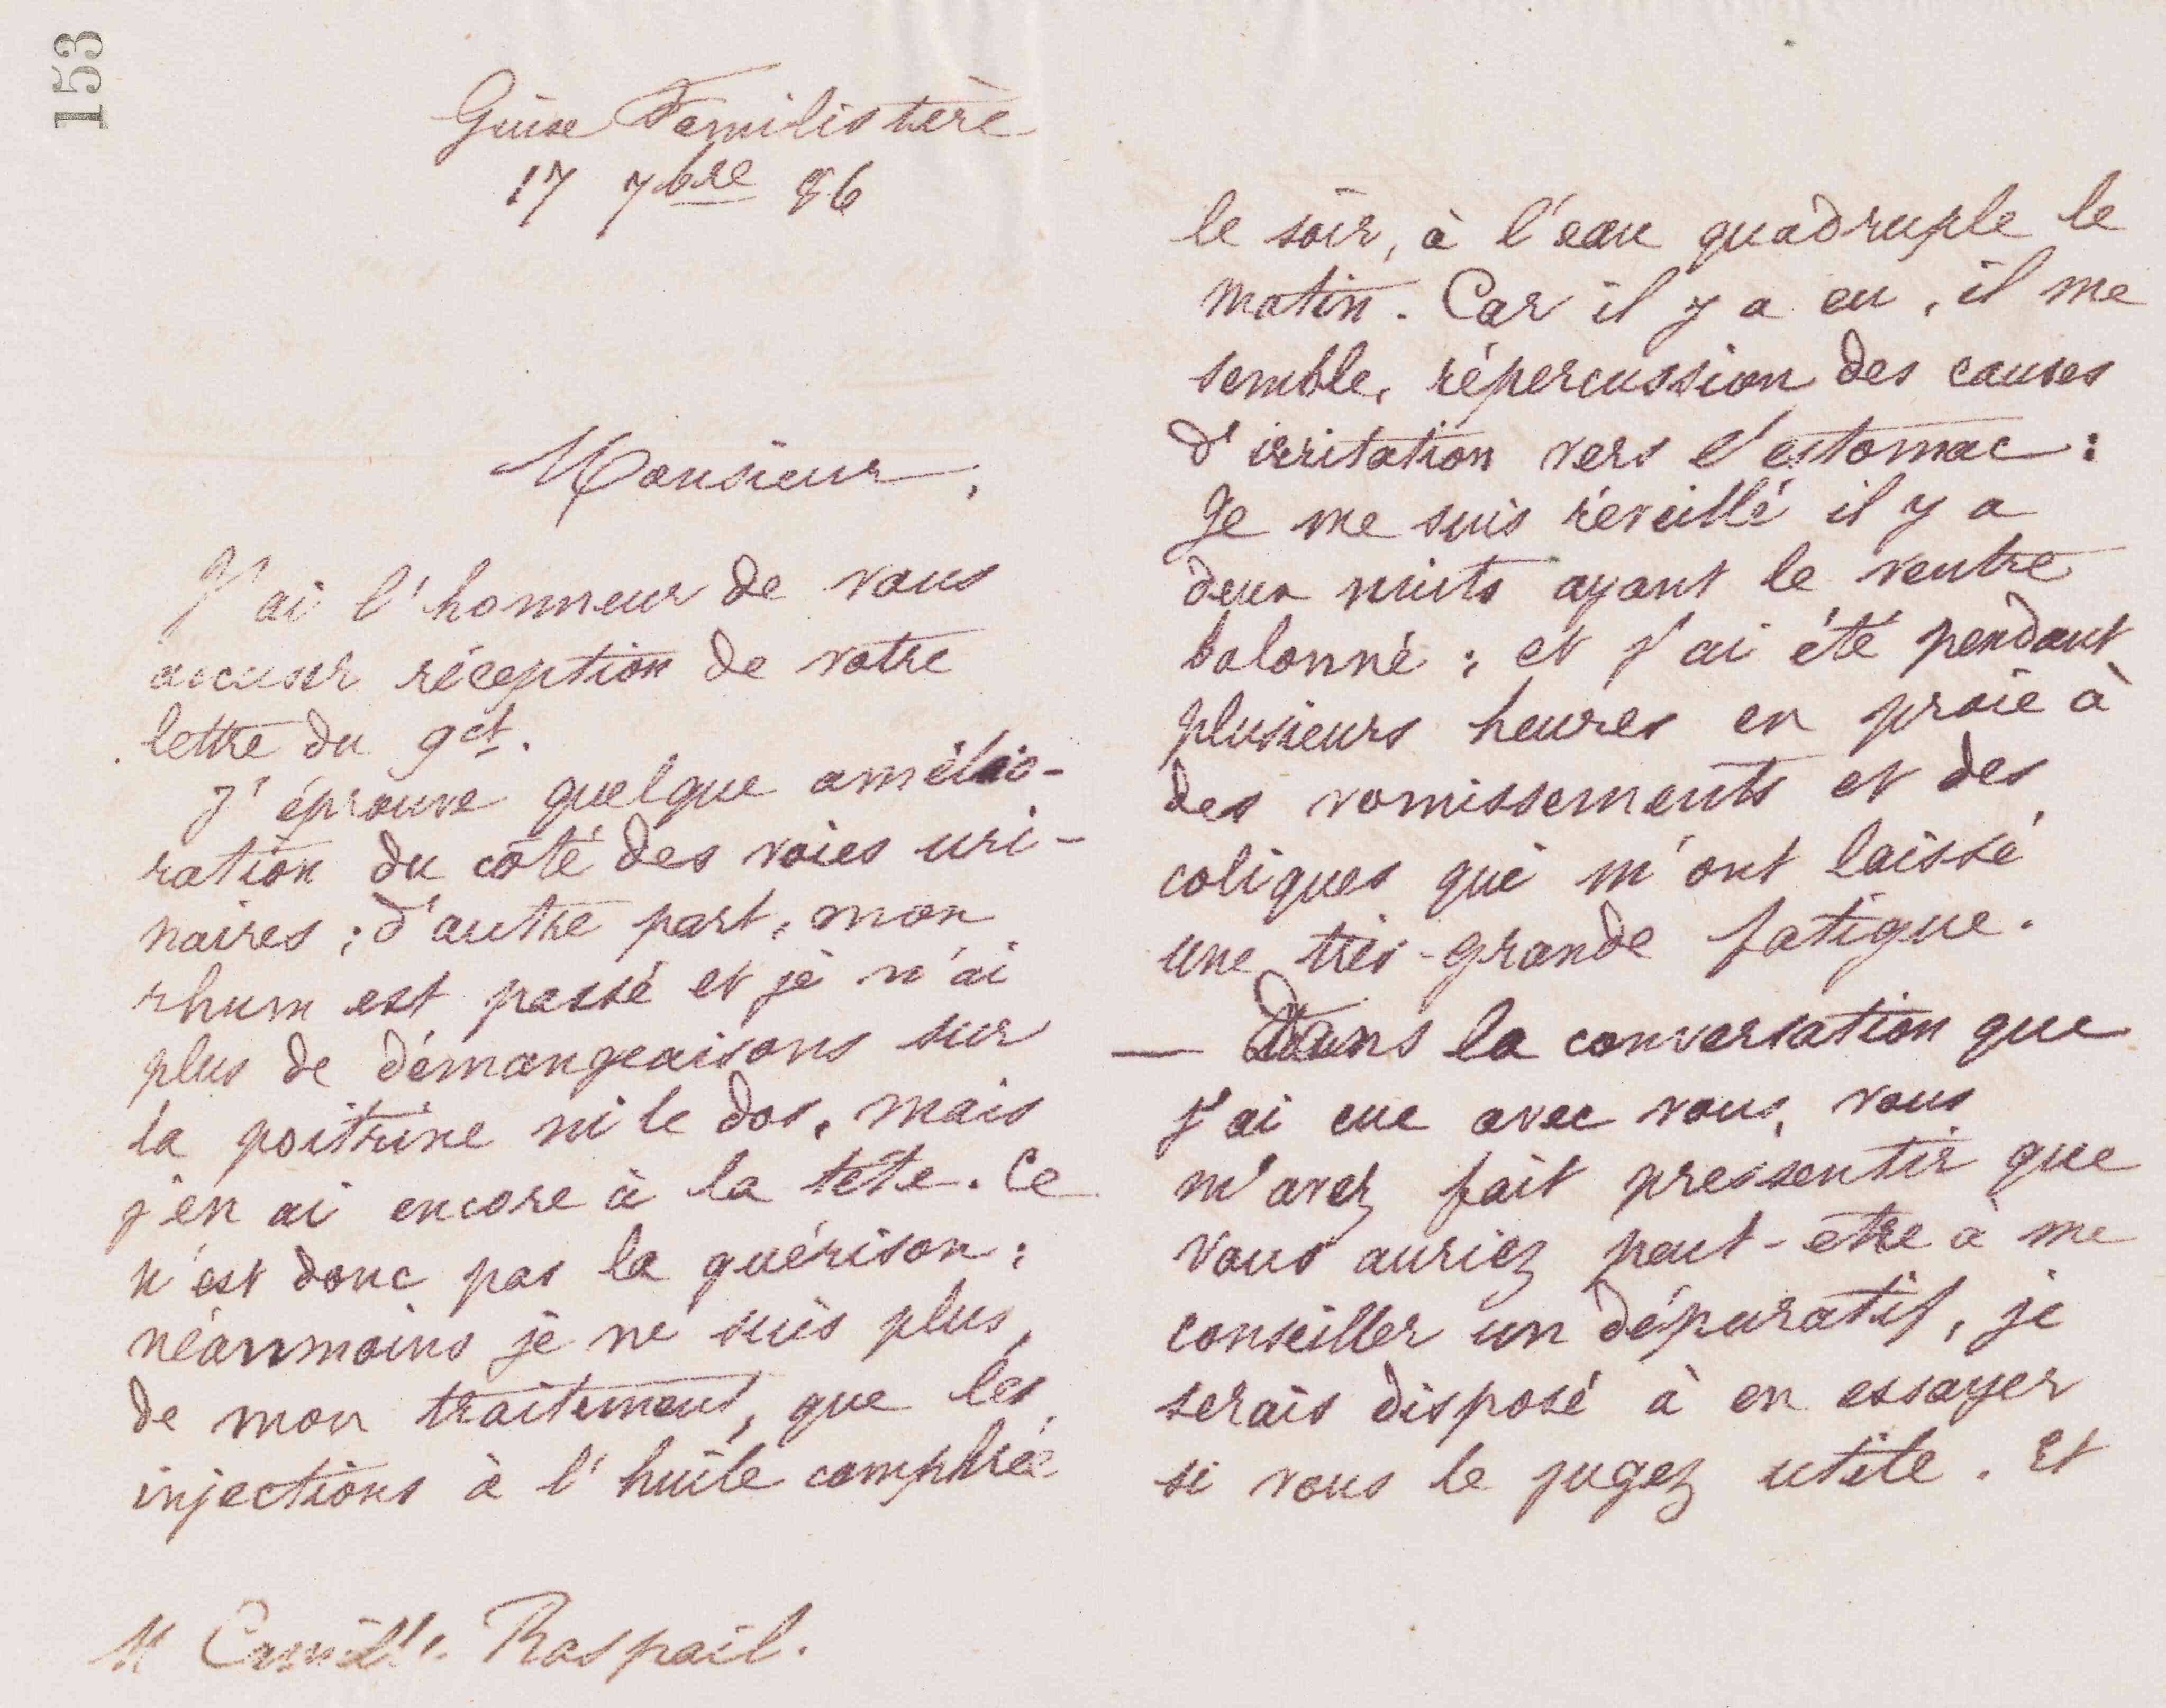 153
Guise Familistère
17 7bre 86
Monsieur,
J'ai l'honneur de vous
accuser réception de votre
lettre du 9 ct.
J'éprouve quelque amélio-
ration du côté des voies uri-
naires ; d'autre part, mon
rhum est passé et je n'ai
plus de démangeaisons sur
la poitrine ni le dos, mais
j'en ai encore à la tête. Ce
n'est donc pas la guérison ;
néanmoins je ne suis plus,
de mon traitement, que les
injections à l'huile camphrée
M Camille Raspail.
le soir, à l'eau quadruple le
matin. Car il y a eu, il me
semble, répercussion des causes
d'irritation vers l'estomac :
Je me suis réveillé il y a
deux nuits ayant le ventre
balonné ; et j'ai été pendant
plusieurs heures en proie à
des vomissements et des
coliques qui m'ont laissé
une très-grande fatigue.
— Dans la conversation que
j'ai eue avec vous, vous
m'avez fait pressentir que
vous auriez peut-etre à me
conseiller un dépuratif, je
serais disposé à en essayer
si vous le jugez utile. Et